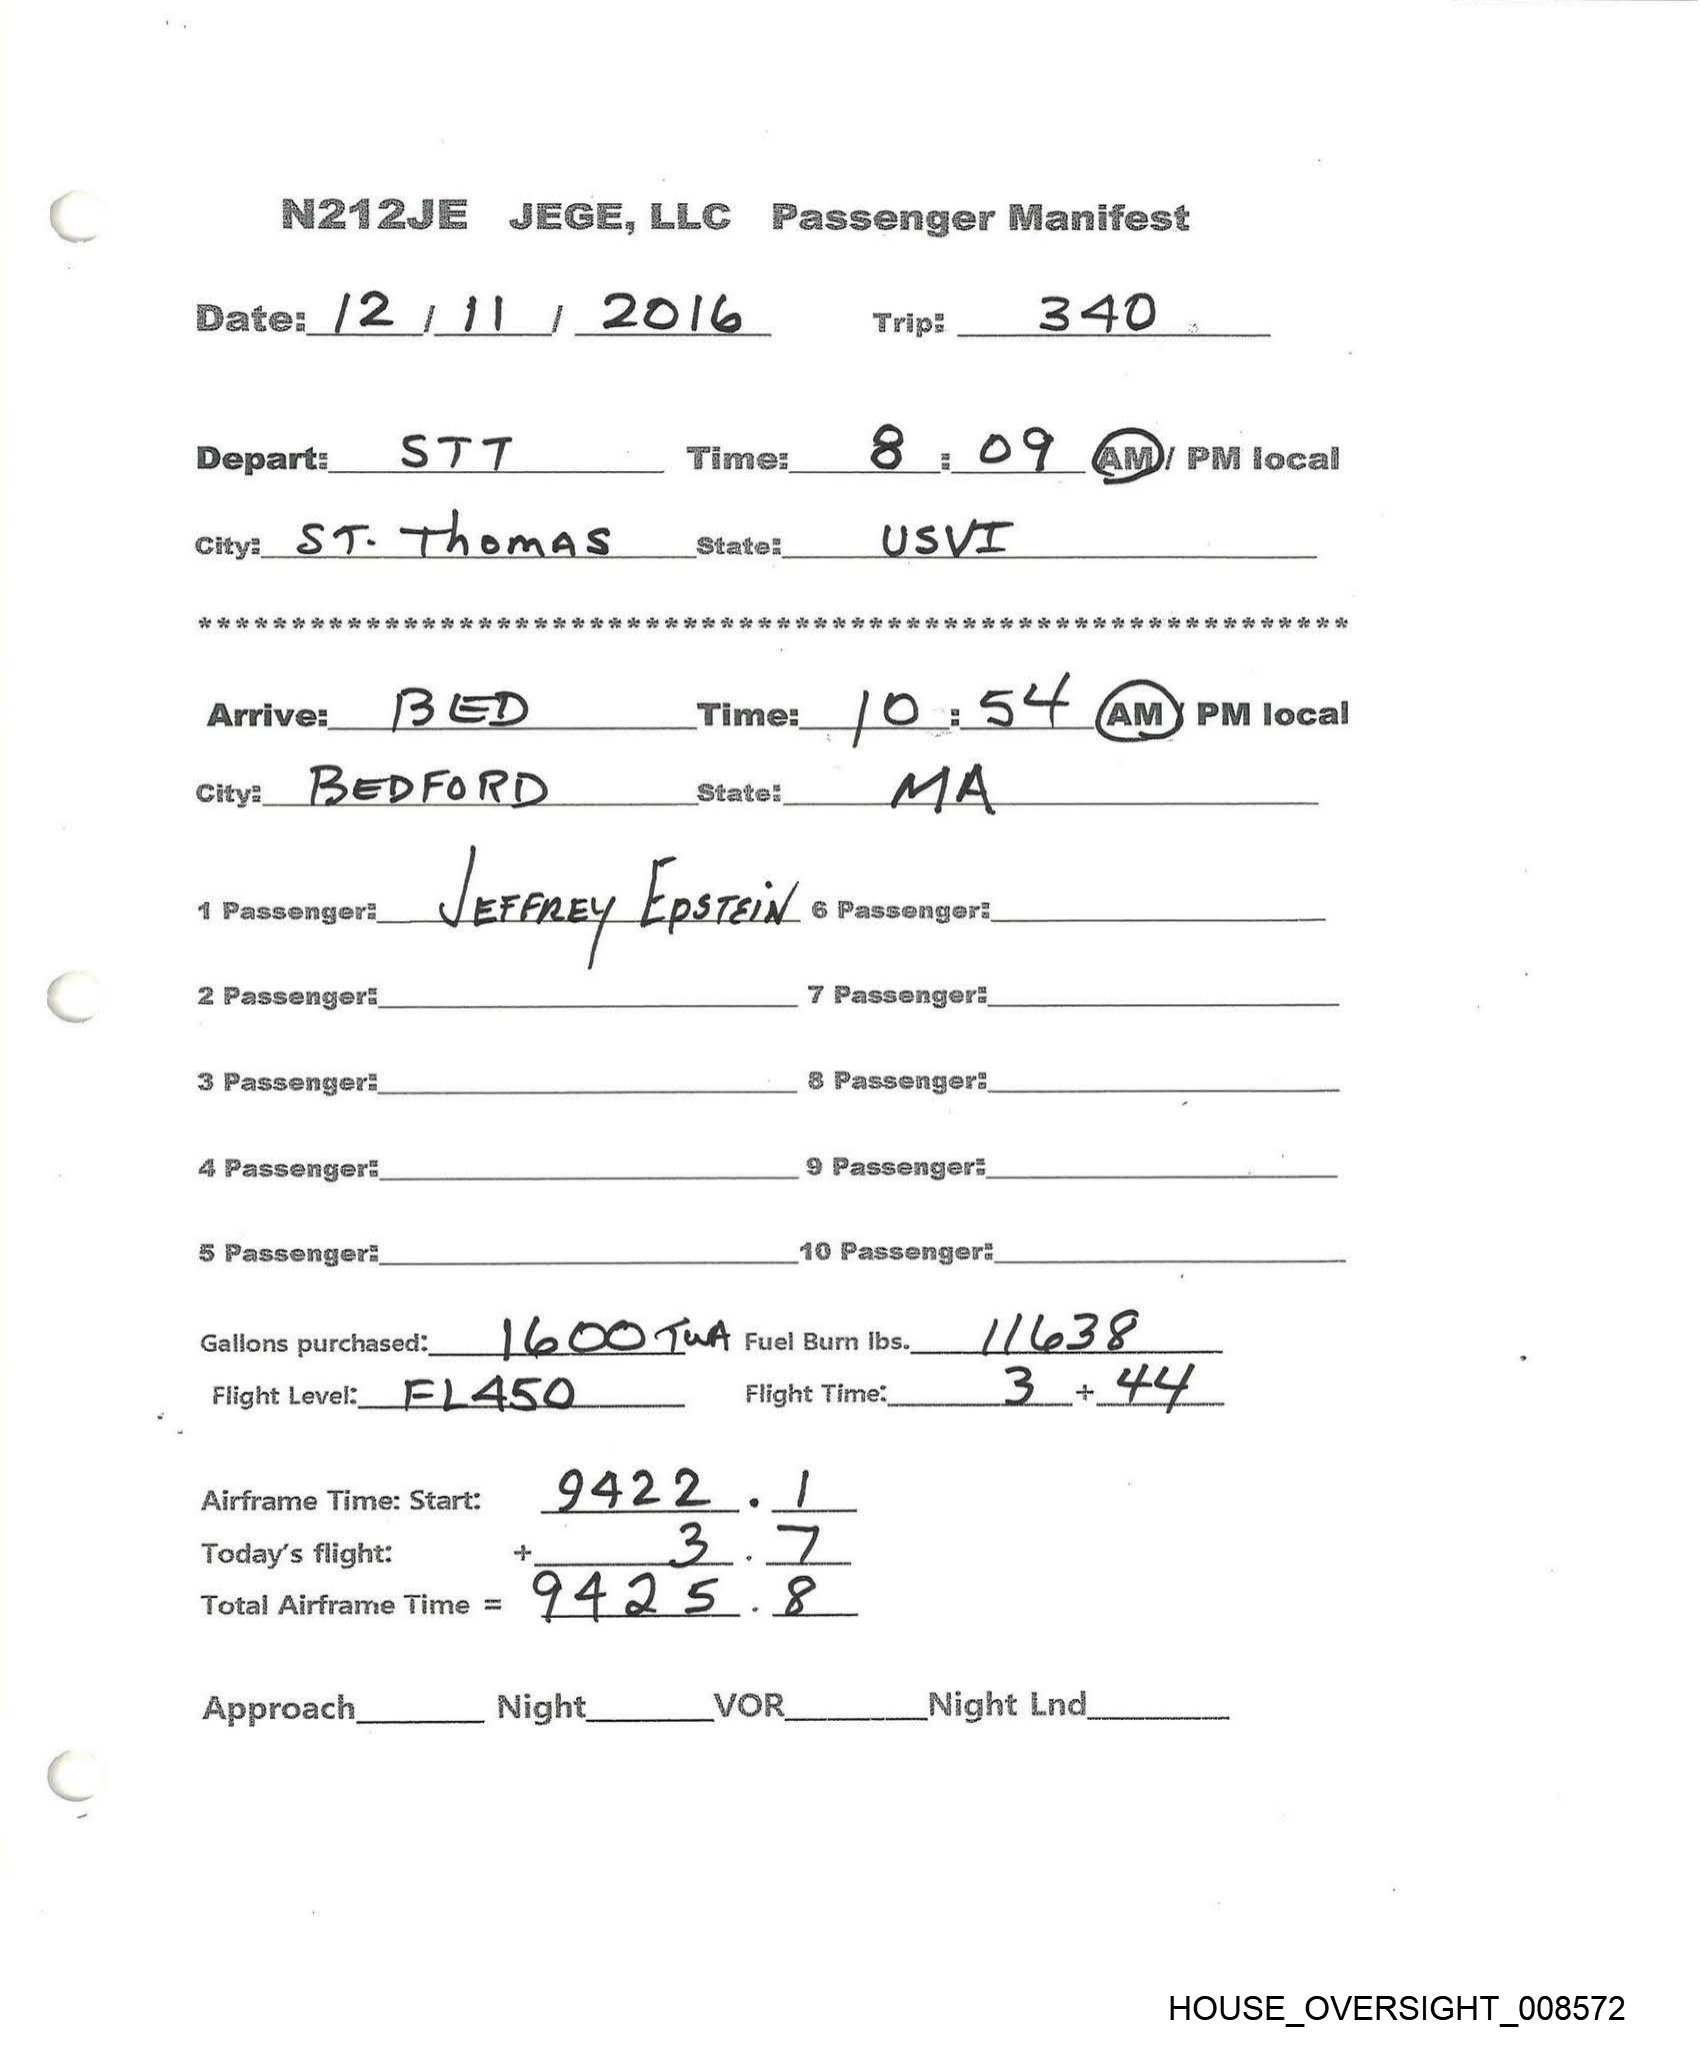 N212JE JEGE, LLC Passenger Manifest
Date: 12 / 11 / 2016 Trip: 340
Depart: STT Time: 8 : 09 AM / PM local
City: ST. Thomas State: USVI
*************************************************************
Arrive: BED Time: 10 : 54 AM / PM local
City: BEDFORD State: MA
1 Passenger: JEFFREY EPSTEIN 6 Passenger:
2 Passenger: 7 Passenger:
3 Passenger: 8 Passenger:
4 Passenger: 9 Passenger:
5 Passenger: 10 Passenger:
Gallons purchased: 1600 TWA Fuel Burn lbs. 11638
Flight Level: FL450 Flight Time: 3 + 44
Airframe Time: Start: 9422 . 1
Today's flight: + 3 . 7
Total Airframe Time = 9425 . 8
Approach Night VOR Night Lnd
HOUSE_OVERSIGHT_008572